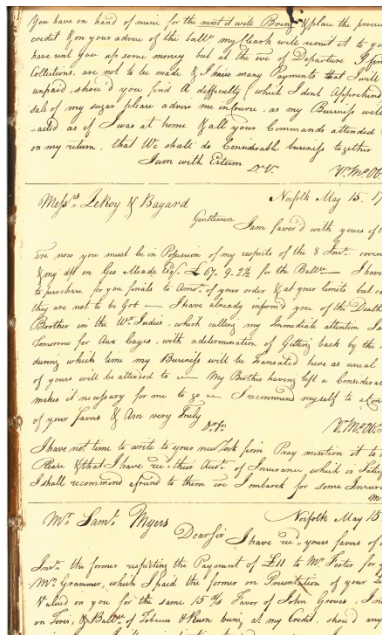 You have on hand of mine for the most it will Bring & place the procee
credit & on your advice of the ballce my Clark will remit it to yo
have sent you up some money but at the eve of Departure I fin
Collections, are not to be made & I have many Payments that I will
unpaid shou'd you find a difficulty (which I dont Apprehend
sale of my sugar please advise me in course, as my Business will
acted as if I was at home & all your Commands attended
on my return, that We shall do Considerable business together
I am with Esteem
Messrs LeRoy & Bayard Norfolk May 15. 17
Gentlemen I am favor'd with yours of
ere now you must be in Possession of my respects of the 8 Inst. coveri
& my dft on Geo Meade Esqr. £67. 9. 2½ for the Ballce — I have
to purchase for you to Amot. of your order & at your limits but ca
they are not to be Got — I have already inform'd you of the Death
Brother in the Wt. Indies, which calling my Immediate attention I sa
Tomorrow for Aux Cayes, with a determination of Getting back by the
during which time my Business will be Transacted here as usual
of yours will be attended to — My Brother having left a Considerab
makes it necessary for me to go — I recommend myself to a Con
of your favors & Am very Truly
I have not time to write to your new York firm Pray mention it to
Please & that I have recd. their Acct. of Insurance which is Satis
I shall recommend a friend to them ere I imbark for some Insuran
Mr. Saml. Myers Norfolk May 15
Dear Sir I have recd. yours favors of
Inst. the former respecting the Payment of £11 to Mr. Foster for
Mr. Grammer, which I paid the former on Presentation of your
Valued on you for the same 15 Favor of John Groves. I no
on Tores, & Ballce of Tobacco & Rum being at my Credit, shou'd any